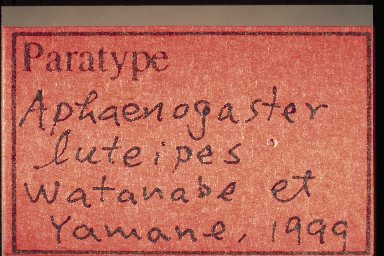 Paratype
Aphaenogaster
luteipes
Watanabe et
Yamane, 1999